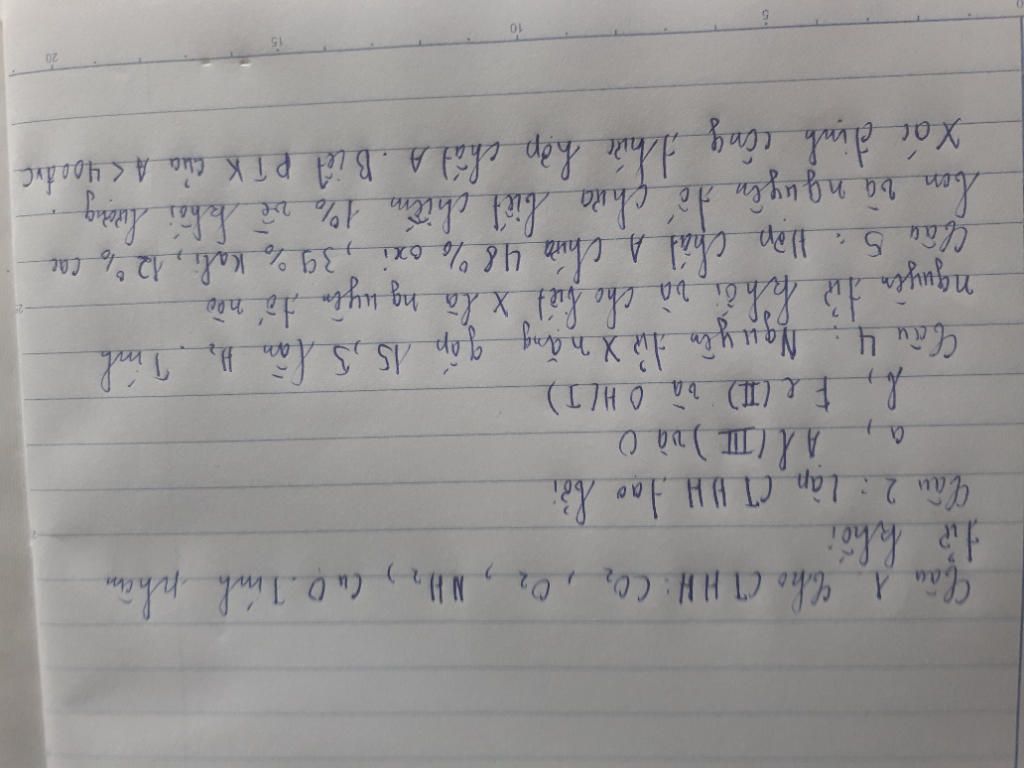 Câu 1. Cho CTHH: CO2, O2, NH2, CuO. Tính phân
tử khối
Câu 2: Lập CTHH tạo bởi
a, Al (III) và O
b, Fe (II) và OH(I)
Câu 4: Nguyên tử X nặng gấp 15,5 lần H2. Tính
nguyên tử khối và cho biết X là nguyên tố nào
Câu 5: Hợp chất A chứa 48% oxi, 39% Kali, 12% cac
bon và nguyên tố chưa biết chiếm 1% về khối lượng.
Xác định công thức hợp chất A. Biết PTK của A < 400đvc
5
10
15
20